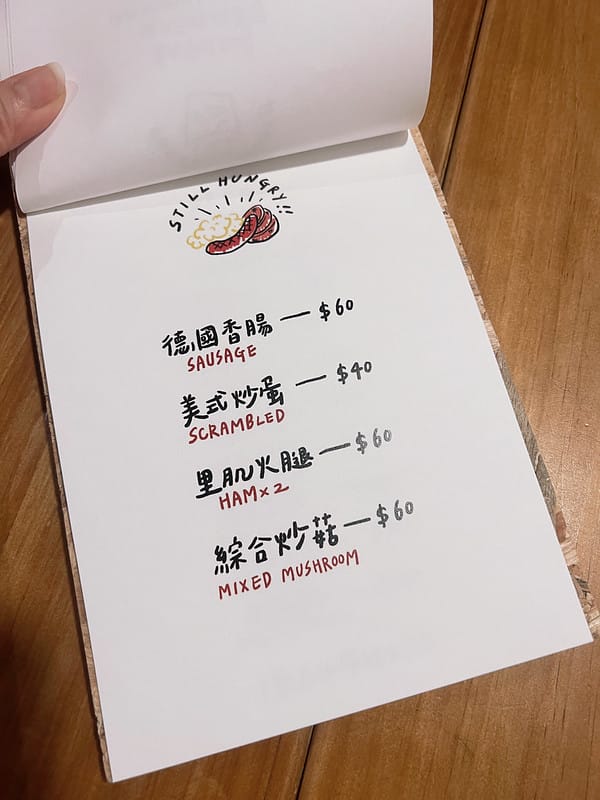 STILL HUNGRY!!
德國香腸 — $60
SAUSAGE
美式炒蛋 — $40
SCRAMBLED
里肌火腿 — $60
HAM x 2
綜合炒菇 — $60
MIXED MUSHROOM